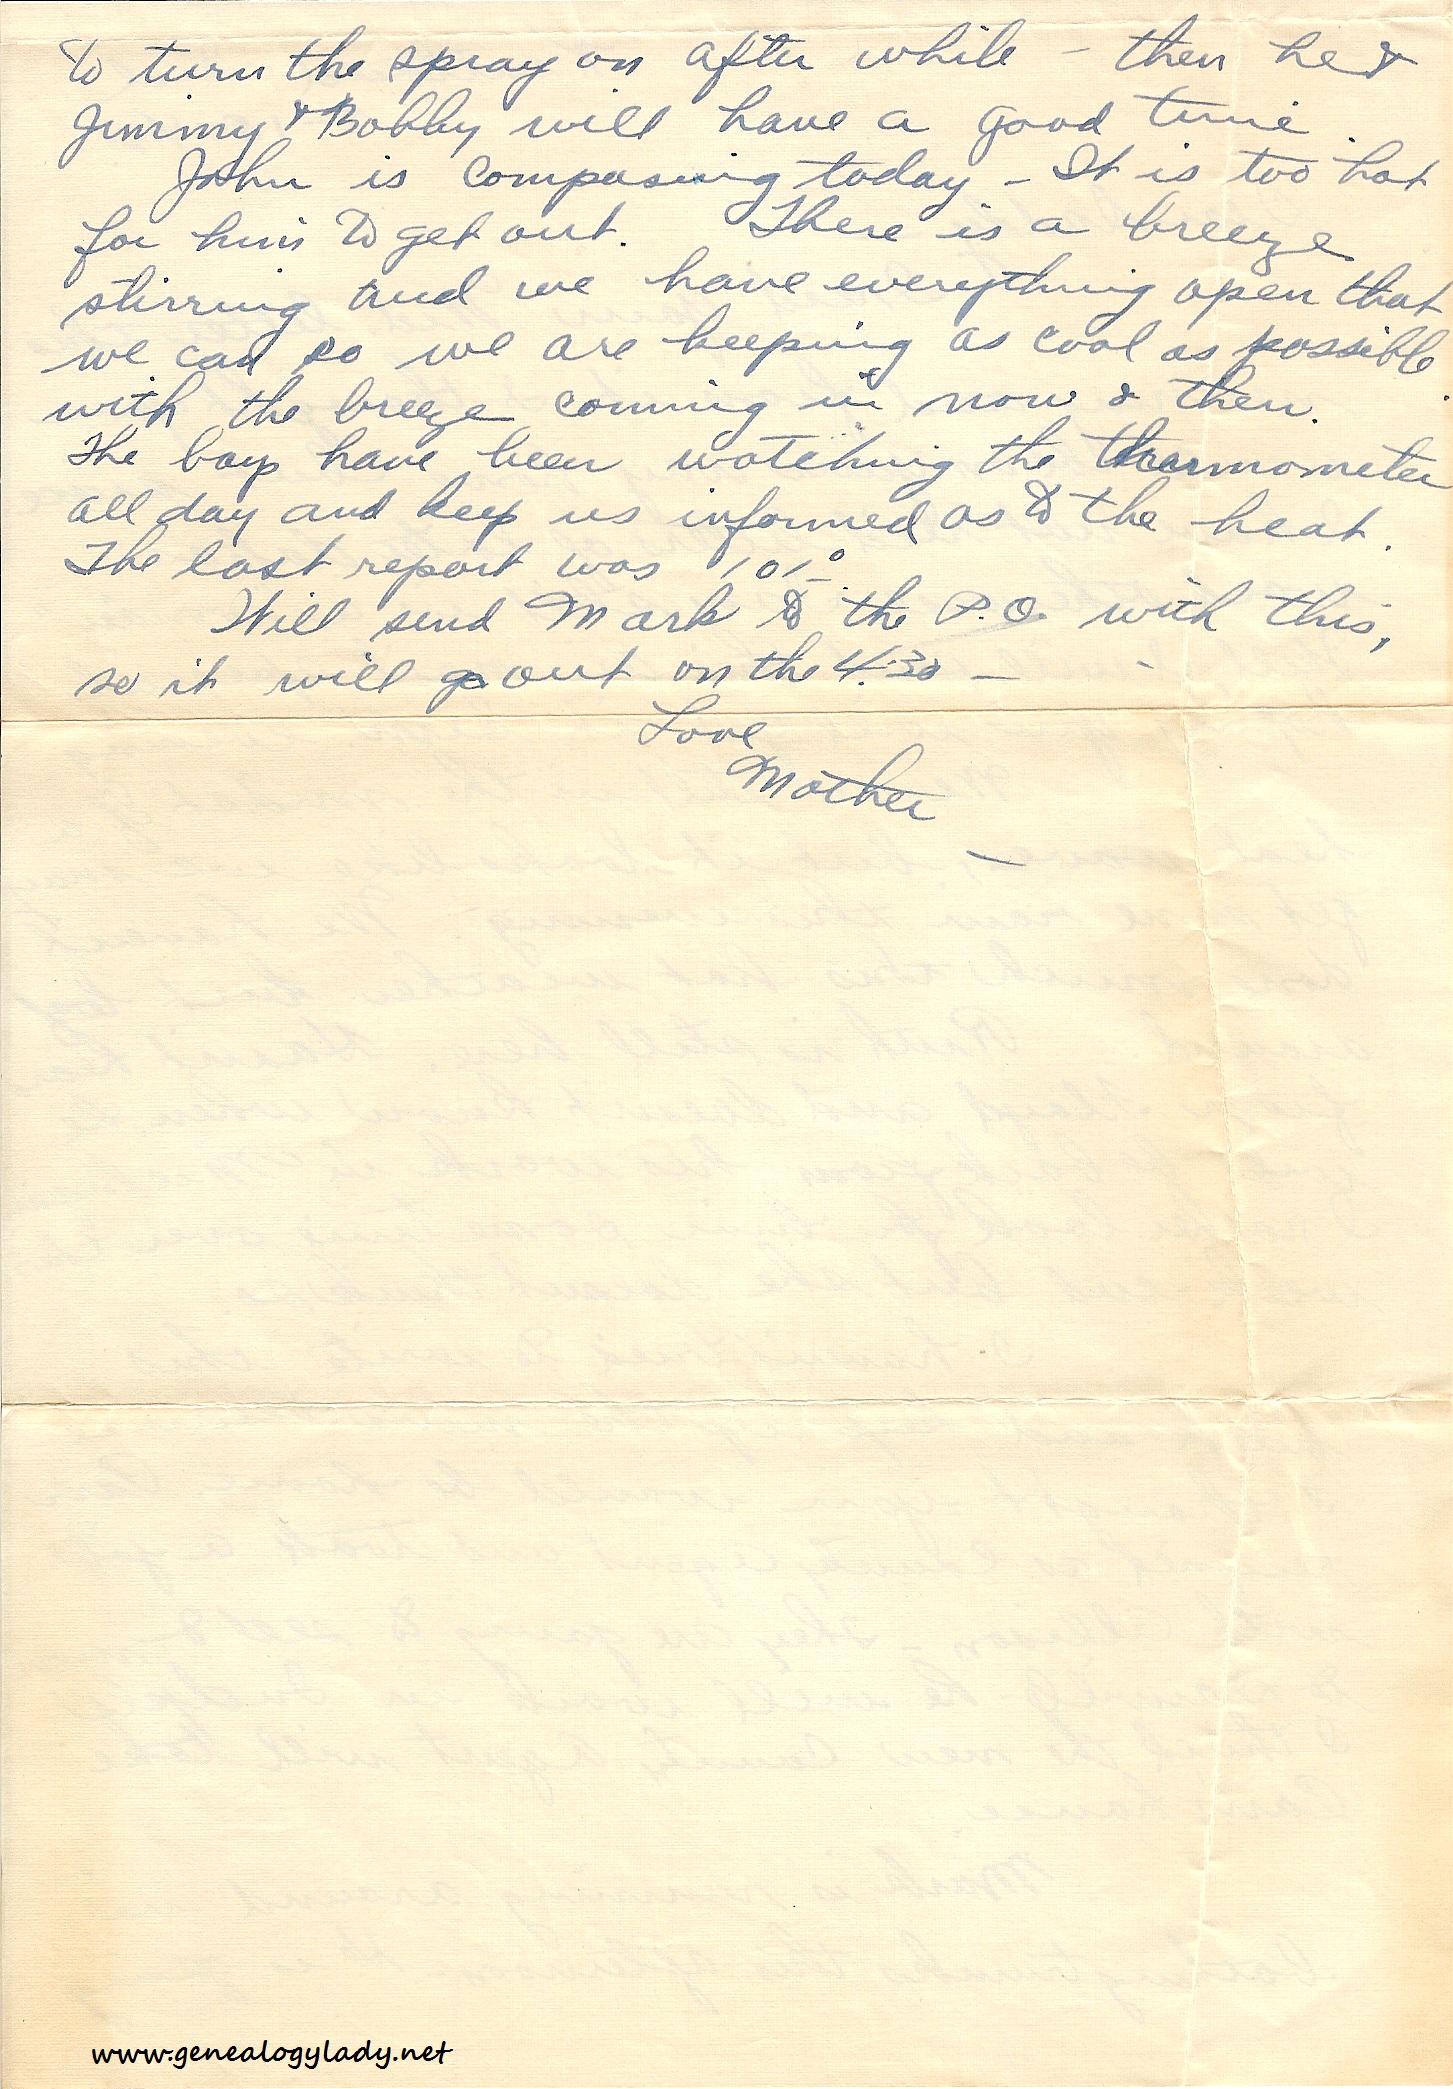 to turn the spray on after while – then he &
Jimmy & Bobby will have a good time.
John is composing today – It is too hot
for him to get out. There is a breeze
stirring and we have everything open that
we can so we are keeping as cool as possible
with the breeze coming in now & then.
The boys have been watching the thermometer
all day and keep us informed as to the heat.
The last report was 101°
Will send Mark to the P.O. with this,
so it will go out on the 4:30 –
Love
Mother
www.genealogylady.net